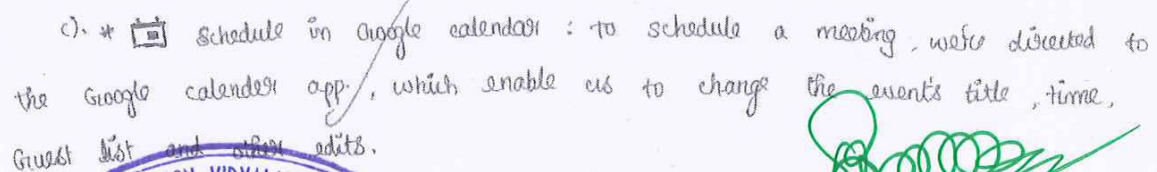 c). * Schedule in Google calendar : to schedule a meeting, we're directed to
the Google calender app., which enable us to change the event's title, time,
Guest list and other edits.